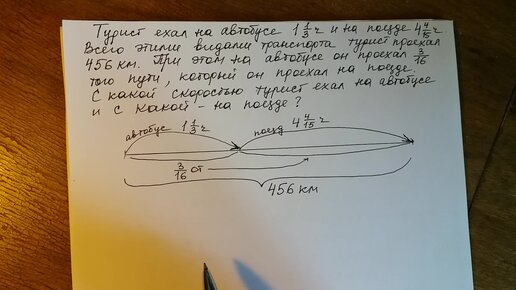 Турист ехал на автобусе 1 1/3 ч и на поезде 4 4/15 ч
Всего этими видами транспорта турист проехал
456 км. При этом на автобусе он проехал 3/16
того пути, который он проехал на поезде.
С какой скоростью турист ехал на автобусе
и с какой - на поезде?
автобус 1 1/3 ч поезд 4 4/15 ч
3/16 от
456 км